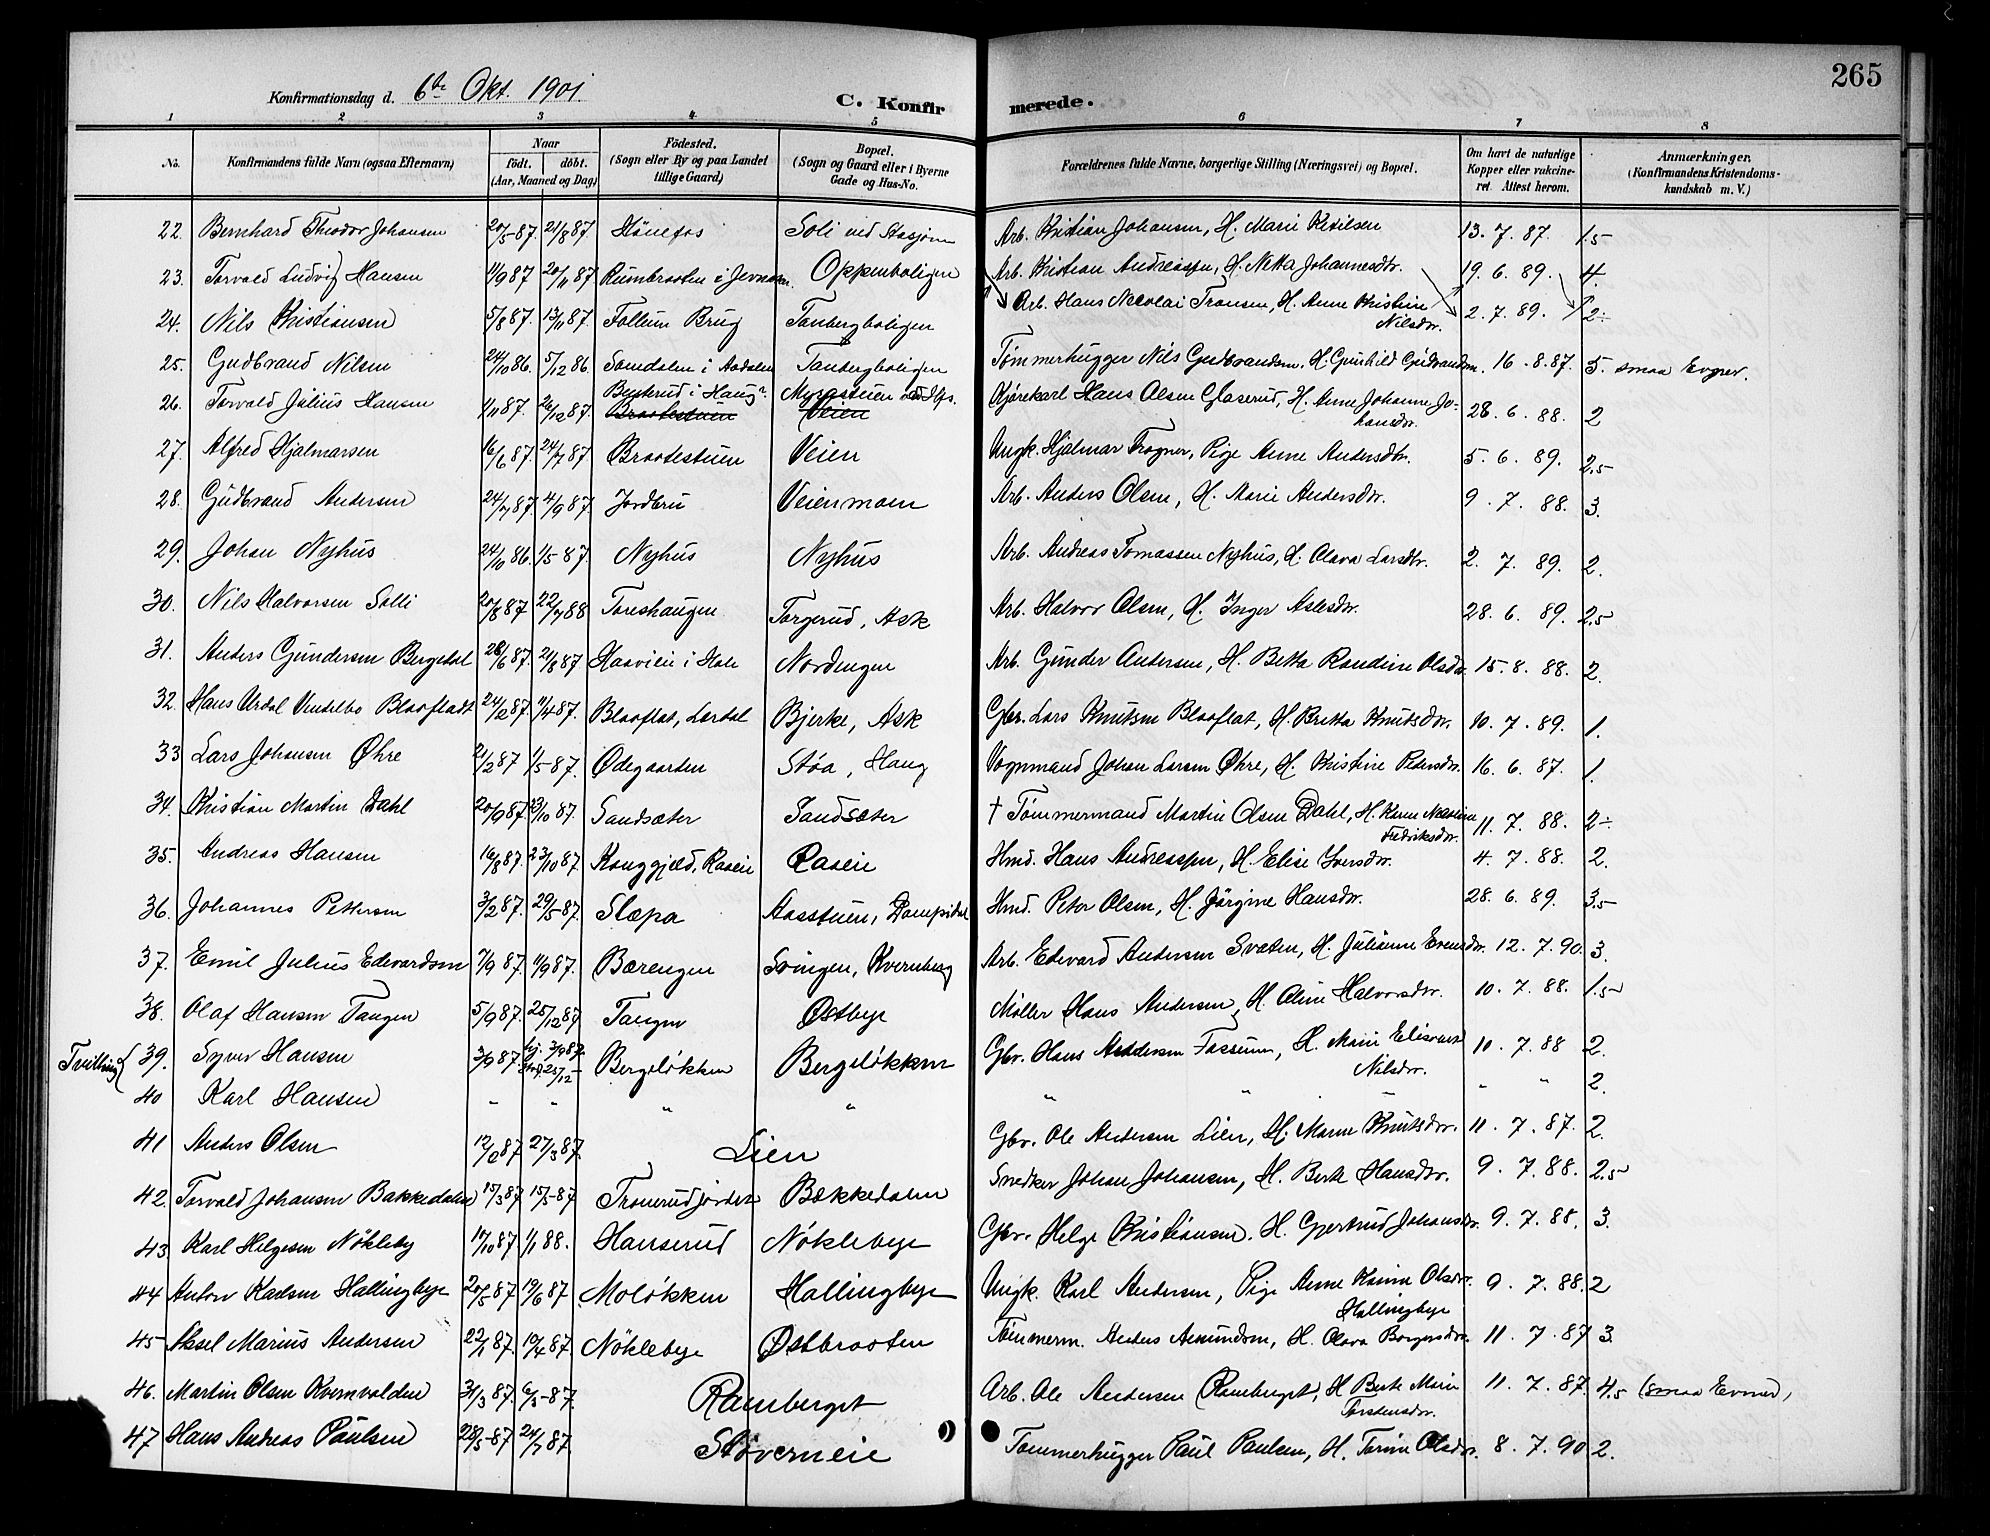 265
Konfirmationsdag d. 6te Okt. 1901
C. Konfirmerede.
1 2 3 4 5 6 7 8
No. | Konfirmandens fulde Navn (ogsaa Efternavn) | Naar født. døbt. (Aar, Maaned og Dag) | Fødested. (Sogn eller By og paa Landet tillige Gaard) | Bopæl. (Sogn og Gaard eller i Byerne Gade og Hus-No. | Forældrenes fulde Navne, borgerlige Stilling (Næringsvei) og Bopæl. | Om havt de naturlige Kopper eller vakcineret. Attest herom. | Anmærkninger. (Konfirmandens Kristendomskundskab m. V.)
22. Bernhard Theodor Johansen 20/5-87. 21/8 87 Hönefos Soli ved Stasjonen Arb. Kristian Johansen, H. Marie Ketilsen 13. 7. 87. 1.5
23. Torvald Ludvig Hansen 11/9 87 20/11 87 i Jevnaker. Oppenboligen Arb. Kristian Andreassen, H. Netta Johannesdtr. 19. 6. 89. 4.
24. Nils Kristiansen 5/8 87. 13/11 87. Follum Brug Tanbergboligen Arb. Hans Nicolai Fransen, H. Anne Kristine Nilsdtr. 2. 7. 89. 2÷
25. Gudbrand Nilsen 24/10 86. 5/12 86. Somdalen i Aadalen Tanbergboligen Tømmerhugger Nils Gudbrandsen, H. Gunhild Gudbrandsen. 16. 8. 87. 5. smaa Evner.
26. Torvald Julius Hansen 1/11 87. 26/12 87. Busterud i Haug Braatestuen Myrastuen Veien Kjørekarl Hans Olsen Glaserud, H. Anne Johanne Johansdtr. 28. 6. 88. 2
27. Alfred Hjalmarsen 16/6 87. 24/7 87. Braatestuen Veien Ungk. Hjalmar Frogner, Pige Anne Andersdtr. 5. 6. 89. 2.5
28. Gudbrand Andersen 24/7 87. 4/9 87. Jordbru Veienmoen Arb. Anders Olsen, H. Marie Andersdtr. 9. 7. 88. 3.
29. Johan Nyhus 24/10 86. 1/5 87. Nyhus Nyhus Arb. Andreas Tomassen Nyhus, H. Olava Larsdtr. 2. 7. 89. 2.
30. Nils Halvorsen Solli 20/8 87 22/7 88 Toreshaugen Torgerud, Ask Arb. Halvor Olsen, H. Inger Aslesdtr. 28. 6. 89. 2.5
31. Anders Gundersen Bergedal 28/6 87. 21/8 87. Haavien i Hole Nordengen Arb. Gunder Andersen, H. Betta Randine Olsdtr. 15. 8. 88. 2.
32. Hans Urdal Vendelbo Blaafladt 24/2 87. 11/4 87. Blaaflat, Lærdal Bjerke, Ask Gbr. Lars Knutsen Blaaflat, H. Britta Knutsdtr. 10. 7. 89. 1.
33 Lars Johansen Øhre 21/2 87 1/5 87. Ødegaarden Støa, Haug Vognmand Johan Larsen Øhre, H. Kristine Pedersdtr. 16. 6. 87. 1.
34. Kristian Martin Dahl 20/9 87. 23/10 87. Sandsæter Sandsæter † Tømmermand Martin Olsen Dahl, H. Karen Fredriksdtr. 11. 7. 88. 2÷
35. Andreas Hansen 16/8 87. 23/10 87. Kauggjæld, Raaen Raaen Hmd. Hans Andreassen, H. Elise Iversdtr. 4. 7. 88. 2.
36. Johannes Pettersen 3/2 87. 29/5-87. Slæpa Aasstuen, Hmd. Peter Olsen, H. Jörgine Hansdtr. 28. 6. 89. 3.5
37. Emil Julius Edevardsen 7/9 87. 11/9 87. Bærengen Svingen, Kvernberg Arb. Edevard Andersen Svaten, H. Julianne Evensdtr. 12. 7. 90. 3.
38. Olaf Hansen Tangen 5/9 87. 25/12 87 Tangen Østbye Møller Hans Andersen, H. Oline Halvorsdtr. 10. 7. 88. 1.5
Tvilling { 39. Syver Hansen 3/9 87 hj. 3/9 87. 25/12 Bergsløkken Bergsløkken Gbr. Hans Andersen Fossum, H. Marie Nilsdtr. 10. 7. 88 2.
40 Karl Hansen " " " " " " " " 2.
41 Anders Olsen 12/2 87 27/3 87. Lien Gbr. Ole Andersen Lien, H. Maren Knutsdtr. 11. 7. 87. 2.
42. Torvald Johansen Bakkedalen 15/3 87 15/5-87 Tronerudjordet Bækkedalen Snedker Johan Johansen, H. Berte Hansdtr. 9. 7. 88. 2.5
43 Karl Helgesen Nökleby 17/10 87 1/1 88. Hanserud Nöklebye Gbr. Helge Kristiansen. H. Gjertrud Johansdtr. 9. 7. 88. 3.
44 Anton Karlsen Hallingbye 20/5 87. 19/6 87 Moløkken Hallingbye Ungk. Karl Andersen, Pige Anne Karine Olsdtr. Hallingbye 9. 7. 88. 2
45 Aksel Marius Andersen 22/1 87. 10/4 87. Nöklebye Østbraaten Tømmerm. Anders Amundsen, H. Olava Borgersdtr. 11. 7. 87 3.
46. Martin Olsen Kvernvolden 31/3 87. 6/5-87. Ramberget Arb. Ole Andersen Ramberget, H. Berte Marie Torstensdtr. 11. 7. 87. 4.5 (smaa Evner),
47 Hans Andreas Paulsen 28/5-87 24/7 87. Støverneie Tømmerhugger Paul Paulsen, H. Torine Olsdtr. 8. 7. 90 2.